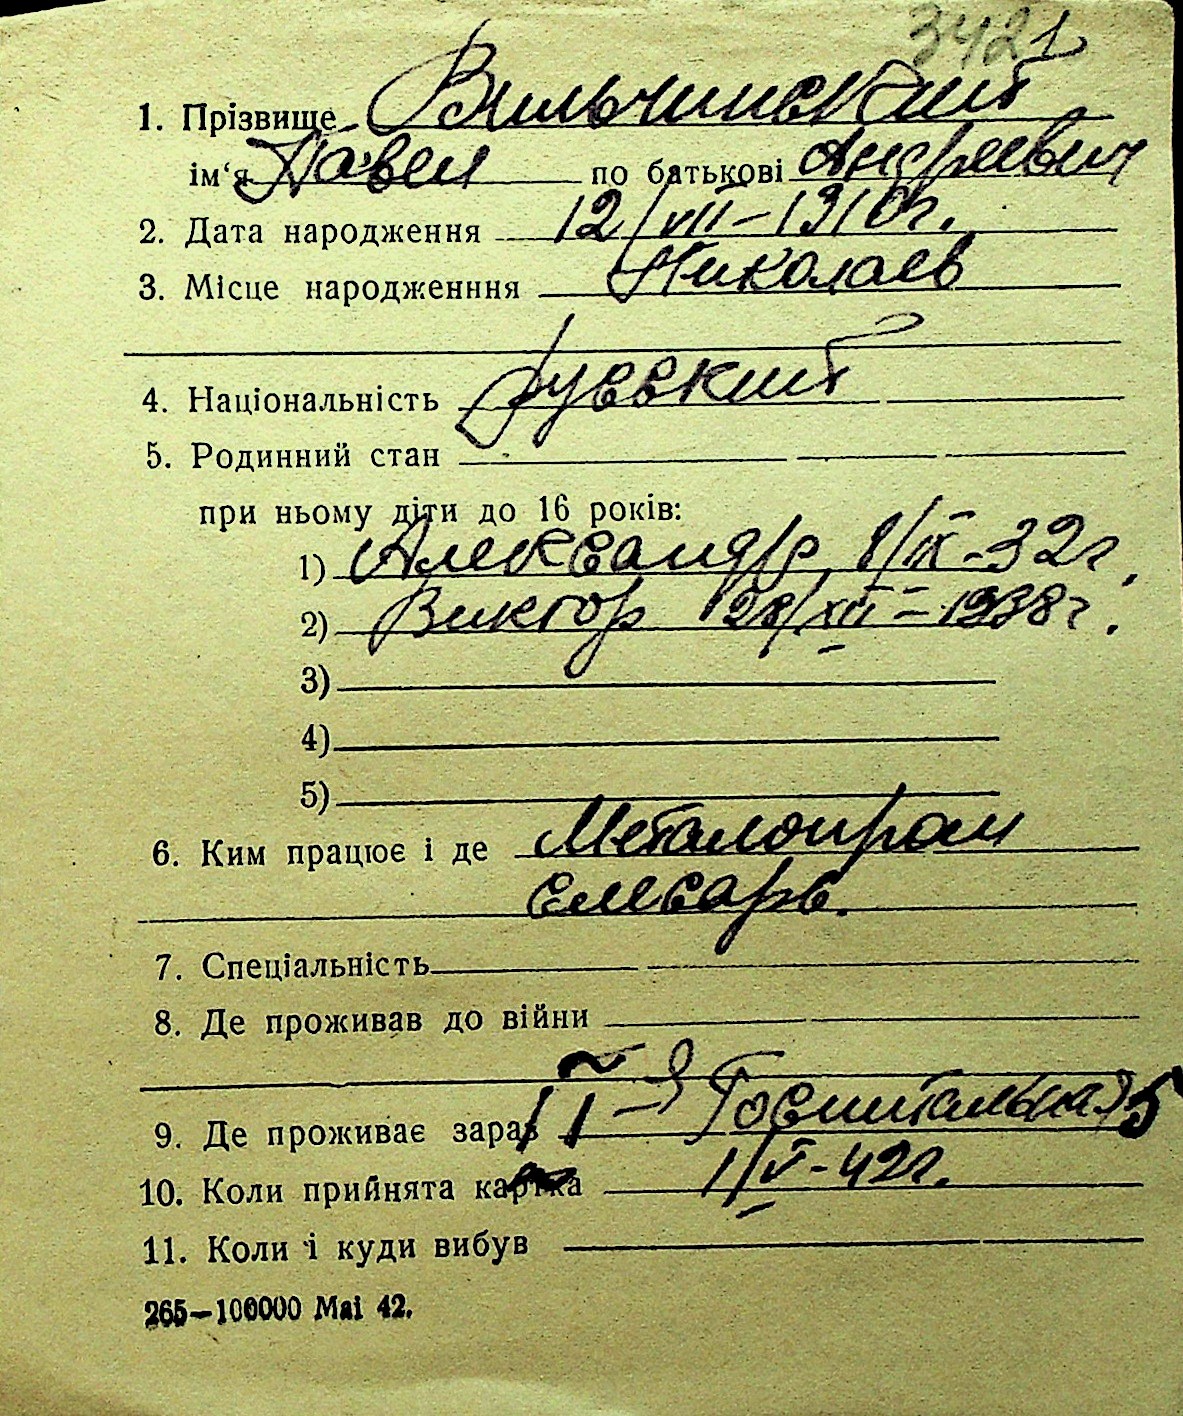 3421
1. Прізвище Вильчинский
ім‘я Павел по батькові Андреевич
2. Дата народження 12/VII–1910г.
3. Місце народженння Николаев
4. Національність Русский
5. Родинний стан
при ньому діти до 16 років:
1) Александр 8/IX-32г.
2) Виктор 28/XII–1938г.
3)
4)
5)
6. Ким працює і де Металопром
слесарь.
7. Спеціальність
8. Де проживав до війни
9. Де проживає зараз Госпитальная 5
10. Коли прийнята картка 1/V-42г.
11. Коли і куди вибув
265—100000 Mai 42.